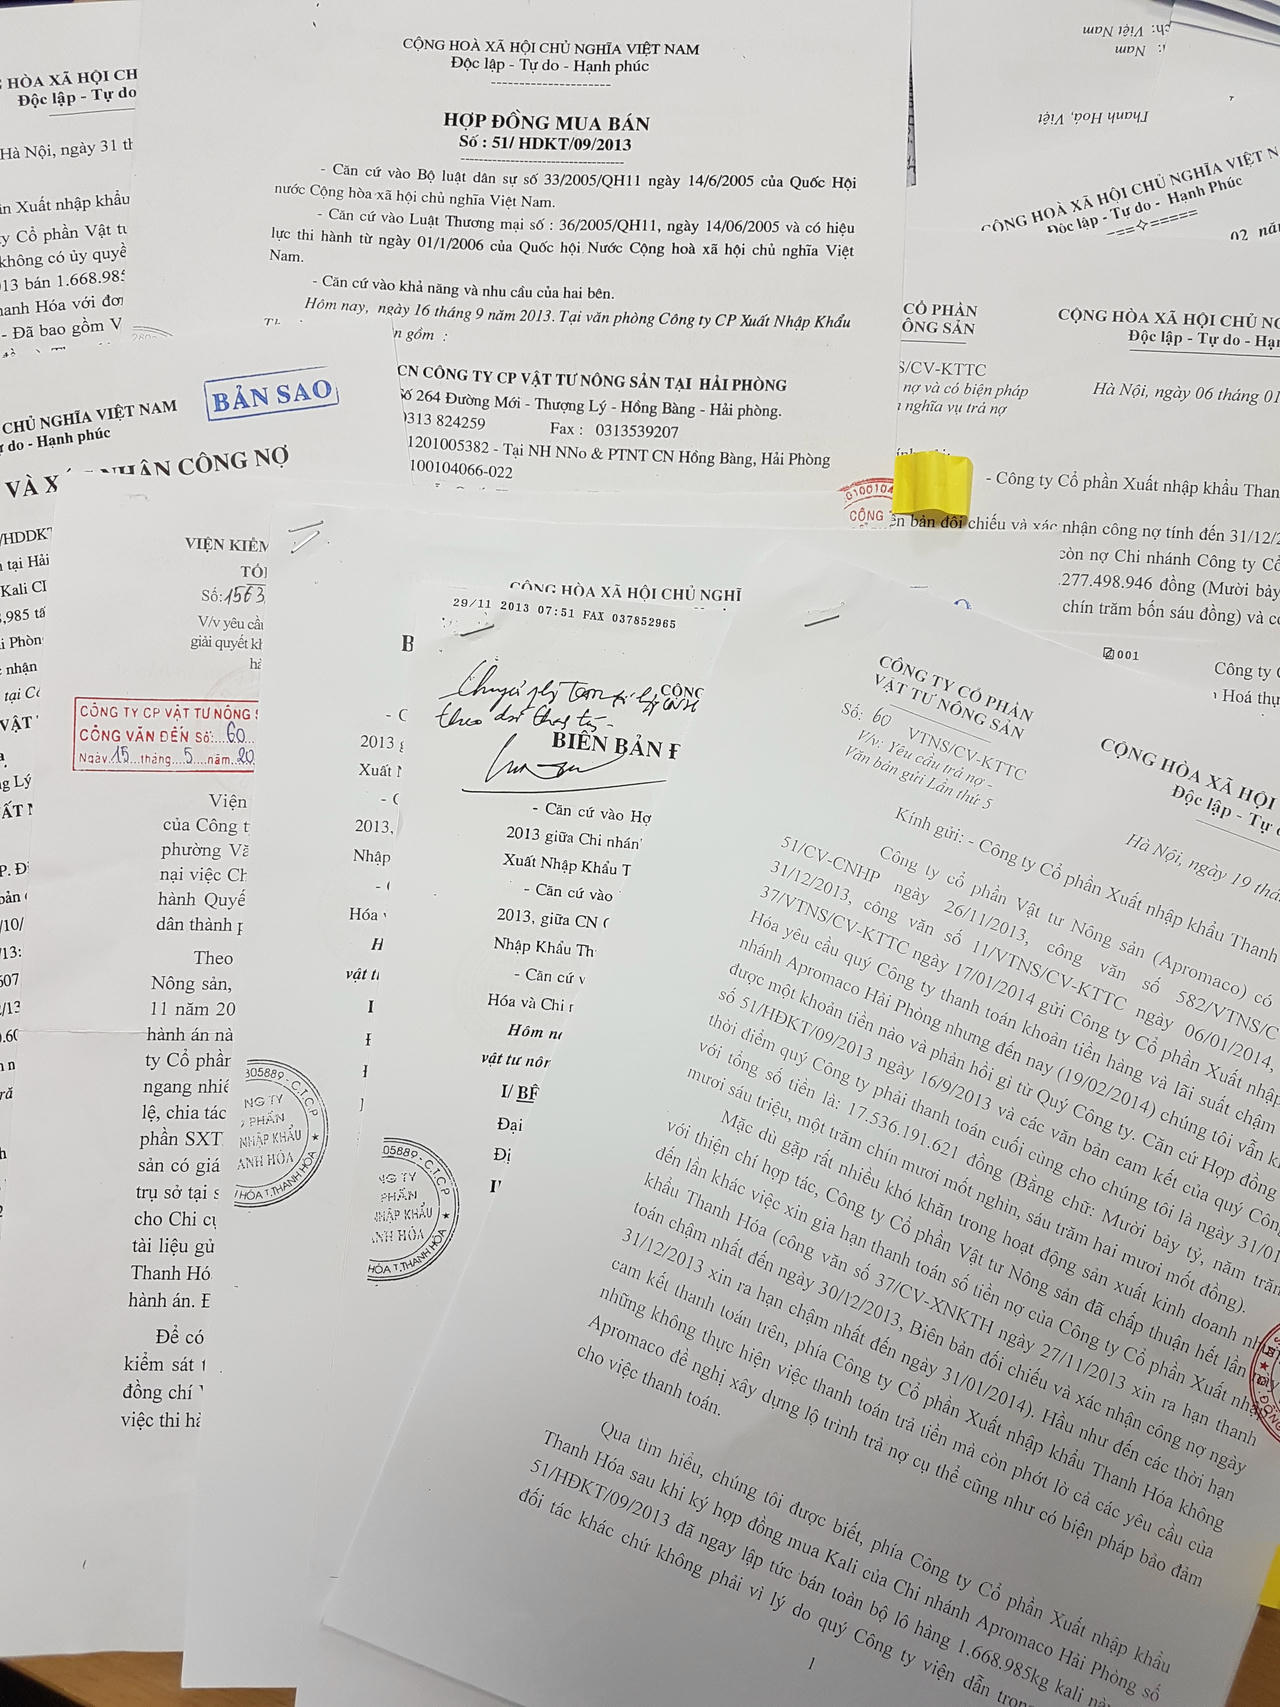 CỘNG HOÀ XÃ HỘI CHỦ NGHĨA VIỆT NAM
Độc lập - Tự do - Hạnh phúc
HỢP ĐỒNG MUA BÁN
Số : 51/ HDKT/09/2013
- Căn cứ vào Bộ luật dân sự số 33/2005/QH11 ngày 14/6/2005 của Quốc Hội
nước Cộng hòa xã hội chủ nghĩa Việt Nam.
- Căn cứ vào Luật Thương mại số : 36/2005/QH11, ngày 14/06/2005 và có hiệu
lực thi hành từ ngày 01/1/2006 của Quốc hội Nước Cộng hoà xã hội chủ nghĩa Việt
Nam.
- Căn cứ vào khả năng và nhu cầu của hai bên.
Hôm nay, ngày 16 tháng 9 năm 2013. Tại văn phòng Công ty CP Xuất Nhập Khẩu
gồm :
CN CÔNG TY CP VẬT TƯ NÔNG SẢN TẠI HẢI PHÒNG
Số 264 Đường Mới - Thượng Lý - Hồng Bàng - Hải phòng.
0313 824259 Fax : 0313539207
1201005382 - Tại NH NNo & PTNT CN Hồng Bàng, Hải Phòng
100104066-022
HÒA XÃ HỘI CH
Độc lập - Tự do
Hà Nội, ngày 31 th
Xuất nhập khẩu
ty Cổ phần Vật tư
không có ủy quyề
013 bán 1.668.985
hanh Hóa với đơn
- Đã bao gồm V
CHỦ NGHĨA VIỆT NAM
do - Hạnh phúc
BẢN SAO
NHẬN CÔNG NỢ
/HDDKT
tại Hải
Kali Cl
,985 tấ
i Phòn
nhận
Thanh Hoá, Việt
Nam
CỘNG HOÀ XÃ HỘI CHỦ NGHĨA VIỆT N
Độc lập - Tự do - Hạnh Phúc
02 năm
CỔ PHẦN
ÔNG SẢN
CỘNG HÒA XÃ HỘI CHỦ NG
Độc lập - Tự do - Hạn
/CV-KTTC
nợ và có biện pháp
nghĩa vụ trả nợ
Hà Nội, ngày 06 tháng 01
- Công ty Cổ phần Xuất nhập khẩu Than
bản đối chiếu và xác nhận công nợ tính đến 31/12/2
còn nợ Chi nhánh Công ty Cổ
.277.498.946 đồng (Mười bảy
chín trăm bốn sáu đồng) và cc
001
Công ty C
Hoá thuộ
VIỆN KIỂM
TỐI
Số:1563
V/v yêu cầu
giải quyết kh
CÔNG TY CP VẬT TƯ NÔNG S
CÔNG VĂN ĐẾN Số:...60
Ngày.15...tháng...5...năm...20
Viện
của Công t
phường Vă
nại việc Ch
hành Quyế
dân thành p
Theo
Nông sản,
11 năm 20
hành án nà
ty Cổ phần
ngang nhiê
lệ, chia tác
phần SXT
sản có giá
trụ sở tại s
cho Chi cụ
tài liệu gử
Thanh Hó
hành án. Đ
Để có
kiểm sát t
đồng chí V
việc thi hà
305889-C.T.C.P
NG TY
PHẦN
NHẬP KHẨU
ANH HÓA
HÓA T.THANH HÓA
2013 g
Xuất N
2013,
Nhập
Hóa v
vật t
CỘNG HÒA XÃ HỘI CHỦ NGHĨ
29/11 2013 07:51 FAX 037852965
CỘNG
BIÊN BẢN Đ
- Căn cứ vào Hợ
2013 giữa Chi nhán
Xuất Nhập Khẩu T
- Căn cứ vào
2013, giữa CN C
Nhập Khẩu Th
- Căn cứ v
Hóa và Chi n
Hôm na
vật tư nôn
I/ BÊ
Đại
Đị
05889-C.T.C.P
NG TY
PHẦN
NHẬP KHẨU
ANH HÓA
HÓA T.THANH HÓA
CÔNG TY CỔ PHẦN
VẬT TƯ NÔNG SẢN
Số: 60 VTNS/CV-KTTC
V/v: Yêu cầu trả nợ -
Văn bản gửi Lần thứ 5
CỘNG HÒA XÃ HỘI
Độc lập - Tự d
Hà Nội, ngày 19 thá
Kính gửi: - Công ty Cổ phần Xuất nhập khẩu Thanh
Công ty cổ phần Vật tư Nông sản (Apromaco) có
51/CV-CNHP ngày 26/11/2013, công văn số 582/VTNS/C
31/12/2013, công văn số 11/VTNS/CV-KTTC ngày 06/01/2014,
37/VTNS/CV-KTTC ngày 17/01/2014 gửi Công ty Cổ phần Xuất nhập
Hóa yêu cầu quý Công ty thanh toán khoản tiền hàng và lãi suất chậm
nhánh Apromaco Hải Phòng nhưng đến nay (19/02/2014) chúng tôi vẫn k
được một khoản tiền nào và phản hồi gì từ Quý Công ty. Căn cứ Hợp đồng
số 51/HĐKT/09/2013 ngày 16/9/2013 và các văn bản cam kết của quý Côn
thời điểm quý Công ty phải thanh toán cuối cùng cho chúng tôi là ngày 31/01
với tổng số tiền là: 17.536.191.621 đồng (Bằng chữ: Mười bảy tỷ, năm trăm
mươi sáu triệu, một trăm chín mươi mốt nghìn, sáu trăm hai mươi mốt đồng).
Mặc dù gặp rất nhiều khó khăn trong hoạt động sản xuất kinh doanh nh
với thiện chí hợp tác, Công ty Cổ phần Vật tư Nông sản đã chấp thuận hết lần này
đến lần khác việc xin gia hạn thanh toán số tiền nợ của Công ty Cổ phần Xuất nhập
khẩu Thanh Hóa (công văn số 37/CV-XNKTH ngày 27/11/2013 xin ra hạn thanh
toán chậm nhất đến ngày 30/12/2013, Biên bản đối chiếu và xác nhận công nợ ngày
31/12/2013 xin ra hạn chậm nhất đến ngày 31/01/2014). Hầu như đến các thời hạn
cam kết thanh toán trên, phía Công ty Cổ phần Xuất nhập khẩu Thanh Hóa không
những không thực hiện việc thanh toán trả tiền mà còn phớt lờ cả các yêu cầu của
Apromaco đề nghị xây dựng lộ trình trả nợ cụ thể cũng như có biện pháp bảo đảm
cho việc thanh toán.
Qua tìm hiểu, chúng tôi được biết, phía Công ty Cổ phần Xuất nhập khẩu
Thanh Hóa sau khi ký hợp đồng mua Kali của Chi nhánh Apromaco Hải Phòng số
51/HĐKT/09/2013 đã ngay lập tức bán toàn bộ lô hàng 1.668.985kg kali nà
đối tác khác chứ không phải vì lý do quý Công ty viện dẫn tron
1